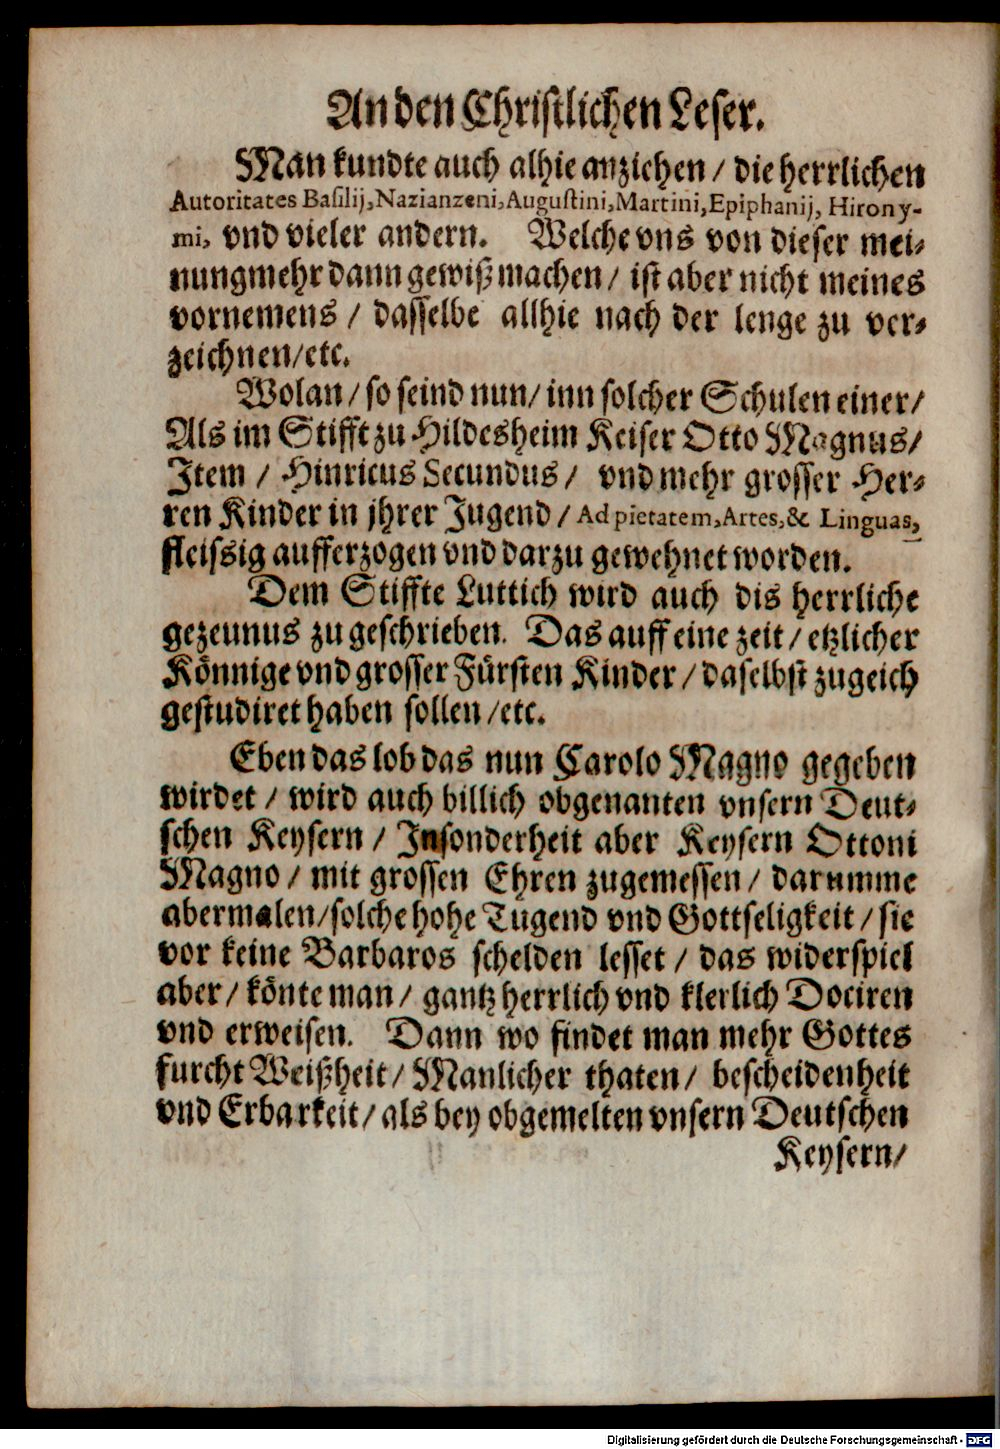 An den Christlichen Leser.
Man kundte auch alhie anziehen / die herrlichen
Autoritates Basilij, Nazianzeni, Augustini, Martini, Epiphanij, Hirony-
mi, vnd vieler andern. Welche vns von dieser mei-
nung mehr dann gewiß machen / ist aber nicht meines
vornemens / dasselbe allhie nach der lenge zu ver-
zeichnen/etc.
Wolan / so seind nun / inn solcher Schulen einer /
Als im Stifft zu Hildesheim Keiser Otto Magnus /
Item / Hinricus Secundus / vnd mehr grosser Her-
ren Kinder in jhrer Jugend / Ad pietatem, Artes, & Linguas,
fleissig aufferzogen vnd darzu gewehnet worden.
Dem Stiffte Luttich wird auch dis herrliche
gezeunus zu geschrieben. Das auff eine zeit / etzlicher
Könnige vnd grosser Fürsten Kinder / daselbst zugeich
gestudiret haben sollen /etc.
Eben das lob das nun Carolo Magno gegeben
wirdet / wird auch billich obgenanten vnsern Deut-
schen Keysern / Insonderheit aber Keysern Ottoni
Magno / mit grossen Ehren zugemessen / darumme
abermalen/solche hohe Tugend vnd Gottseligkeit / sie
vor keine Barbaros schelden lesset / das widerspiel
aber / könte man / gantz herrlich vnd klerlich Dociren
vnd erweisen. Dann wo findet man mehr Gottes
furcht Weißheit / Manlicher thaten / bescheidenheit
vnd Erbarkeit / als bey obgemelten vnsern Deutschen
Keysern /
Digitalisierung gefördert durch die Deutsche Forschungsgemeinschaft - DFG